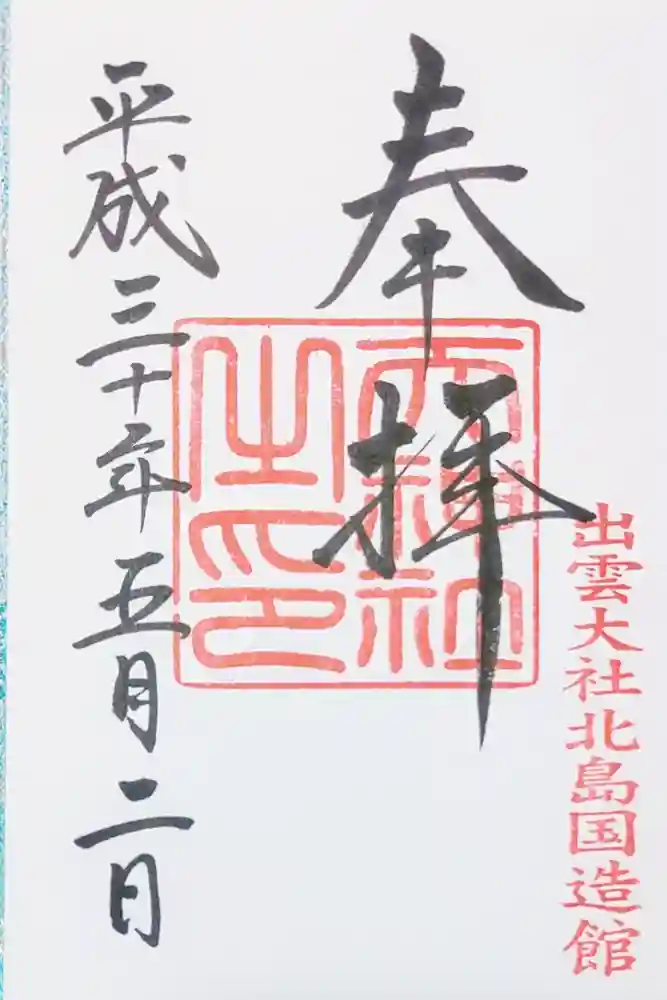 出雲大社北島国造館
奉拝
天神社之印
平成三十年五月二日